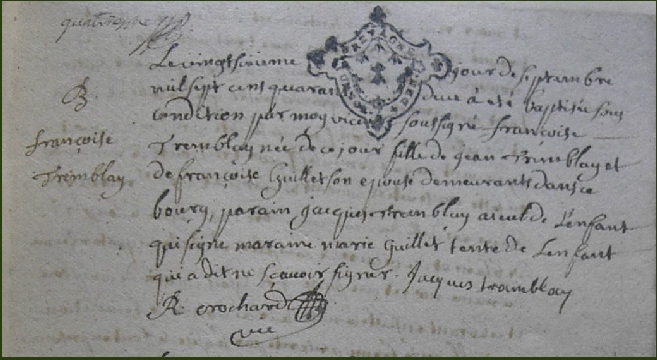 B
françoise
Tremblay
Le vingt sixieme jour de septembre
mil sept cens quarante deux a été baptisée sous
condition par moy vicaire soussigné françoise
Tremblay née de ce jour fille de jean Tremblay et
de françoise Guillet son epouse demeurants dans ce
bourg, parain jacques tremblay aieul de L'enfant
qui signe maraine marie Guillet tente de Lenfant
qui a dit ne scavoir signer. Jacques tramblay
R crochard
vic